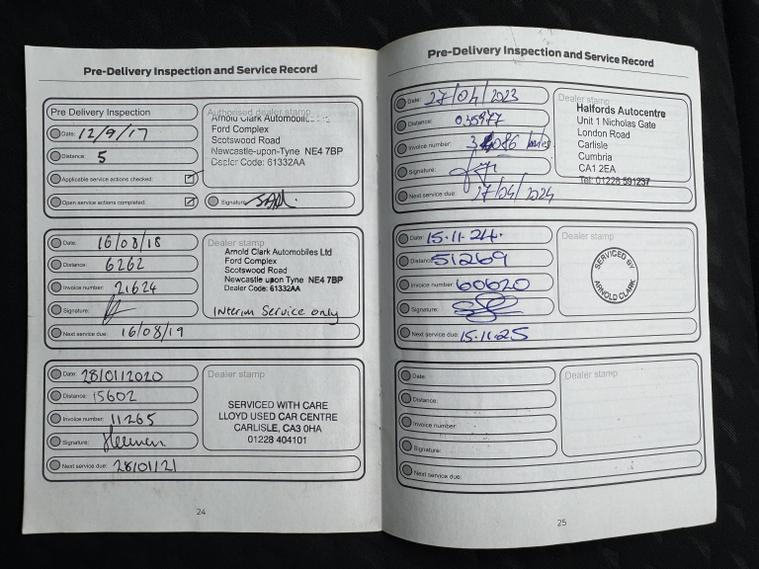 Pre-Delivery Inspection and Service Record
Pre Delivery Inspection
Date: 12/9/17
Distance: 5
Applicable service actions checked:
Open service actions completed:
Authorised dealer stamp
Arnold Clark Automobiles
Ford Complex
Scotswood Road
Newcastle-upon-Tyne NE4 7BP
Dealer Code: 61332AA
Signature:
Date: 16/08/18
Distance: 6262
Invoice number: 21624
Signature:
Next service due: 16/08/19
Dealer stamp
Arnold Clark Automobiles Ltd
Ford Complex
Scotswood Road
Newcastle upon Tyne NE4 7BP
Dealer Code: 61332AA
Interim Service only
Date: 28/01/2020
Distance: 15602
Invoice number: 11265
Signature:
Next service due: 28/01/21
Dealer stamp
SERVICED WITH CARE
LLOYD USED CAR CENTRE
CARLISLE, CA3 0HA
01228 404101
24
Pre-Delivery Inspection and Service Record
Date: 27/04/2023
Distance:
Invoice number:
Signature:
Next service due: 27/04/2024
Dealer stamp
Halfords Autocentre
Unit 1 Nicholas Gate
London Road
Carlisle
Cumbria
CA1 2EA
Tel: 01228 591237
Date: 15.11.24.
Distance: 51269
Invoice number: 60620
Signature:
Next service due: 15.11.25
Dealer stamp
SERVICED BY
ARNOLD CLARK
Date:
Distance:
Invoice number:
Signature:
Next service due:
Dealer stamp
25